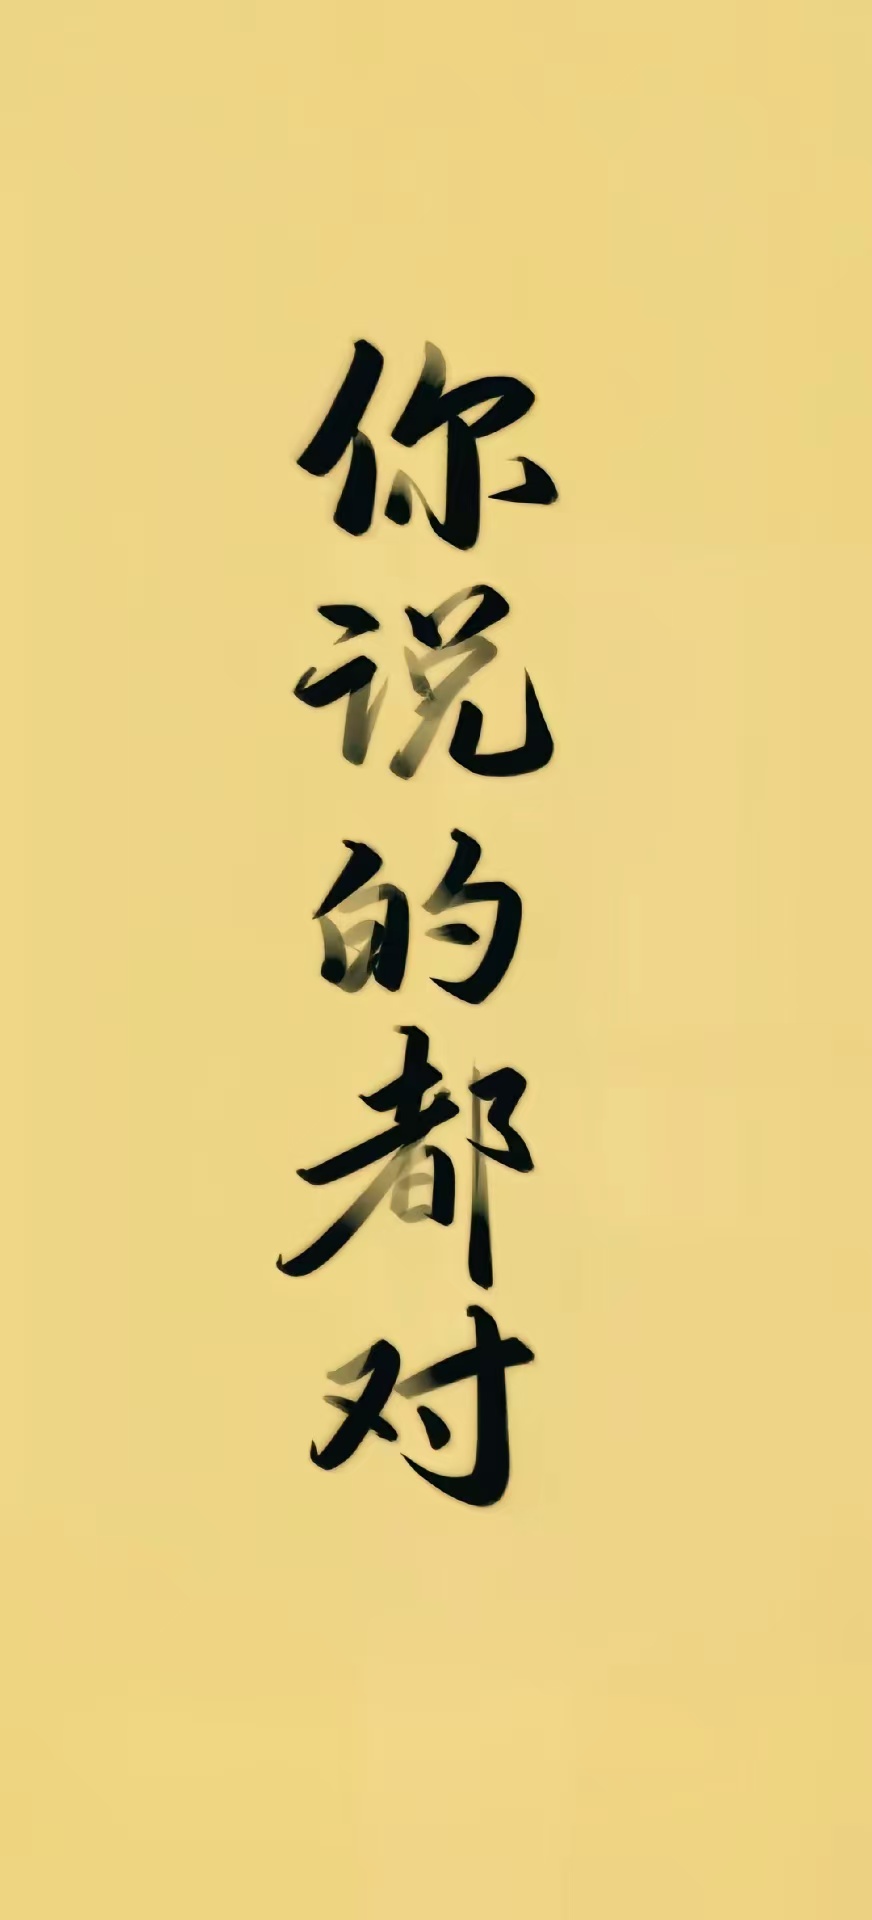 你说的都对